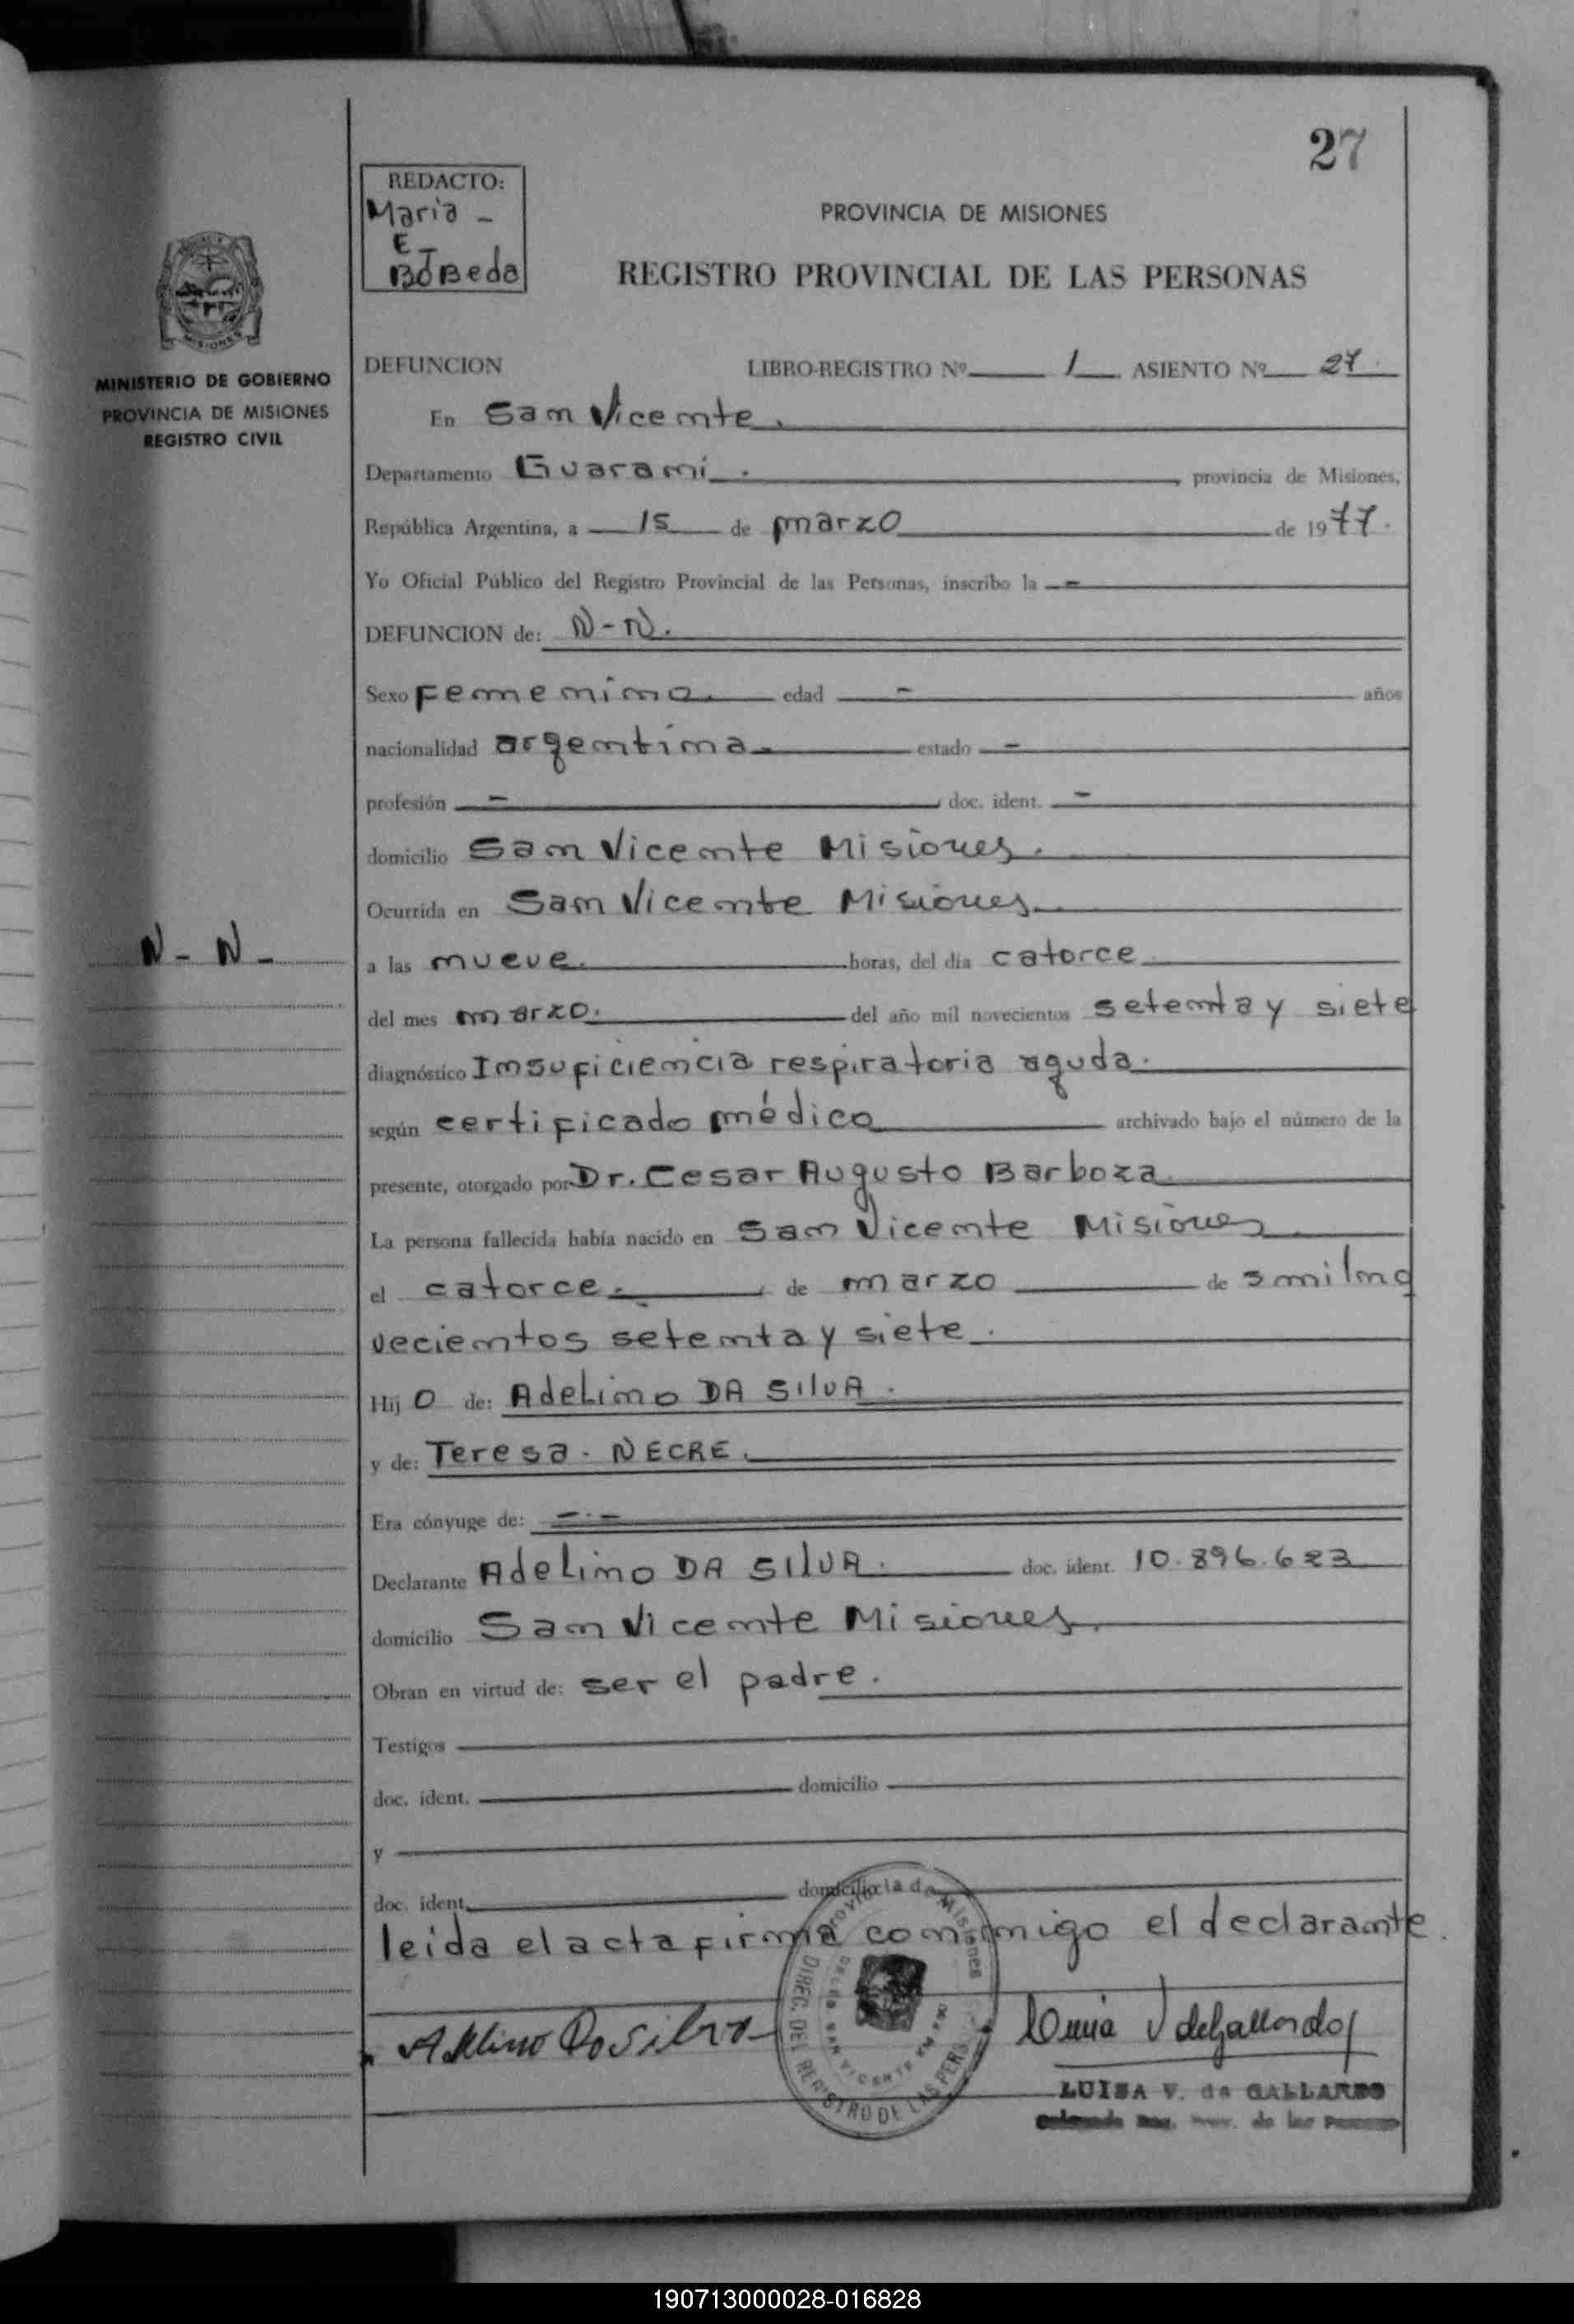 27
REDACTO:
Maria -
E -
BoBeda
PROVINCIA DE MISIONES
REGISTRO PROVINCIAL DE LAS PERSONAS
MISIONES
MINISTERIO DE GOBIERNO
PROVINCIA DE MISIONES
REGISTRO CIVIL
DEFUNCION LIBRO-REGISTRO Nº 1 ASIENTO Nº 27.
En San Vicente.
Departamento Guaraní. , provincia de Misiones,
República Argentina, a 15 de marzo de 1977.
Yo Oficial Público del Registro Provincial de las Personas, inscribo la -
DEFUNCION de: N-N.
Sexo Femenino. edad - años
nacionalidad argentina. estado -
profesión - , doc. ident. -
domicilio San Vicente Misiones.
Ocurrida en San Vicente Misiones.
N - N -
a las nueve. horas, del día catorce.
del mes marzo. del año mil novecientos setenta y siete
diagnóstico Insuficiencia respiratoria aguda.
según certificado médico archivado bajo el número de la
presente, otorgado por Dr. Cesar Augusto Barboza.
La persona fallecida había nacido en San Vicente Misiones
el catorce. , de marzo de mil no
vecientos setenta y siete.
Hij O de: AdeLino DA SILVA.
y de: Teresa - NECRE.
Era cónyuge de: - . -
Declarante AdeLino DA SILVA. doc. ident. 10.896.623
domicilio San Vicente Misiones.
Obran en virtud de: ser el padre.
Testigos
doc. ident. domicilio
y
doc. ident. domicilio
leida el acta firma conmigo el declarante.
Provincia de Misiones
DIREC. DEL REGISTRO DE LAS PERS
SAN VICENTE
LUISA V. de GALLARDO
190713000028-016828